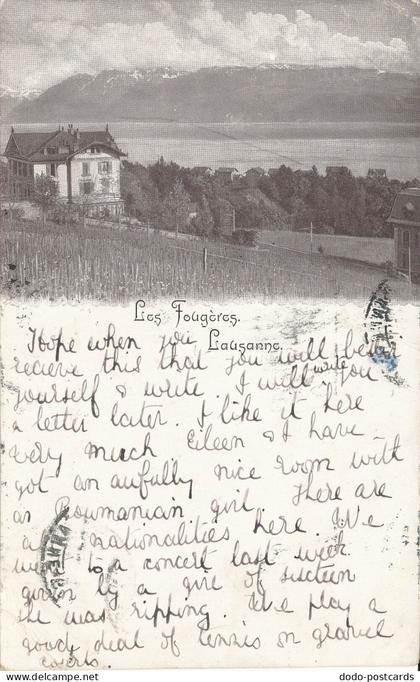 Les Fougères.
Lausanne.
Hope when you
receive this that you will be
yourself & write. I will write you
a letter later. I like it here
very much Eileen & I have
got an awfully nice room with
a Roumanian girl. There are
nationalities here. We
went to a concert last week
given by a girl of sixteen
she was ripping. We play a
good deal of tennis on gravel
courts.
dodo-postcards.com